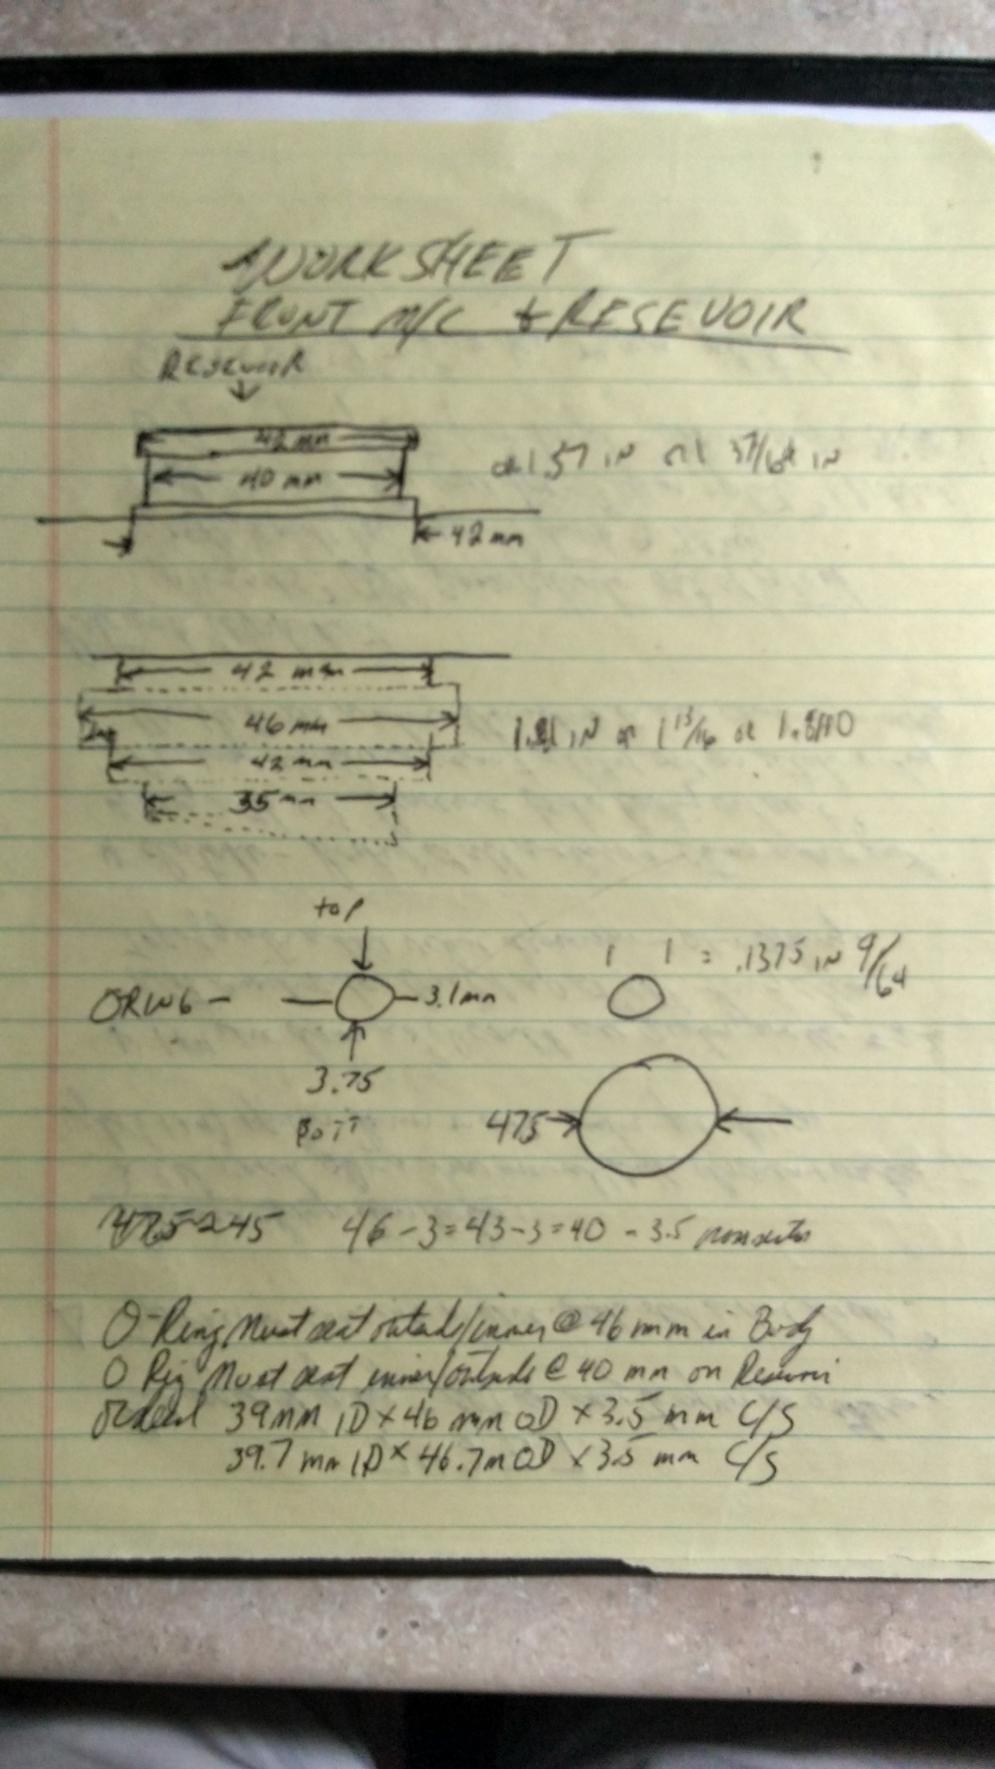 WORKSHEET
FRONT M/C & RESEVOIR
RESEVOIR
42 mm
40 mm
or 1.57 IN or 1 37/64 IN
42 mm
42 mm
46 mm
1.81 IN or 1 13/16 or 1.8110
42 mm
35 mm
top
= .1375 IN 9/64
ORING - 3.1mm
3.75
BOTT
475
475-245 46-3=43-3=40 - 3.5
O-Ring Must seat outside/inner @ 46 mm in Body
O Rig Must seat inner/outside @ 40 mm on
39mm ID x 46 mm OD x 3.5 mm C/S
39.7 mm ID x 46.7m OD x 3.5 mm C/S